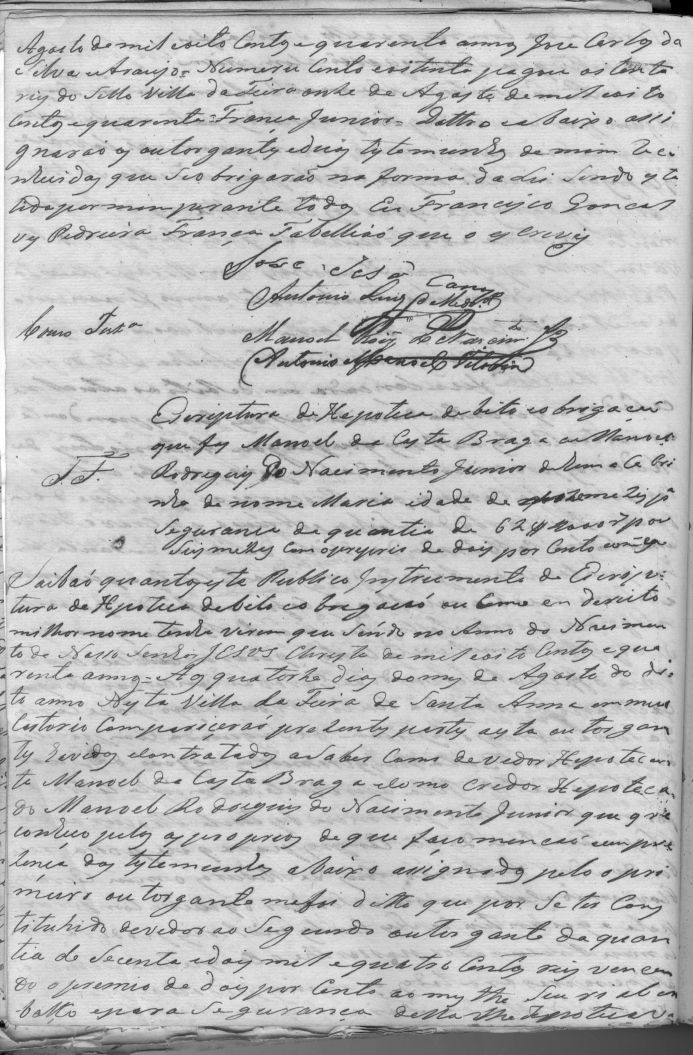 Agosto de mil oito Centos e quarenta annos Jose Carlos da
Silva e Araujo = Numero Cento e oitenta pagou oitenta
reis do Sello Villa da Feira onze de Agosto de mil oito
Centos e quarenta = França Junior = Dattro e abaixo assi
gnaraõ os outorgantes e duas testemunhas de mim
que se obrigaraõ na forma da Lei Sendo esta
lida por mim perante todos Eu Francisco Gonçal
ves Pedreira França Tabelliaõ que o escrevy
Jose
Antonio Luis
Como Testa
Manoel Roiz do Nascimto Jr
Antonio Manoel
Escriptura de Hepoteca debito e obrigaçaõ
que faz Manoel da Costa Braga a Manoel
Rodrigues do Nacimento Junior de huma Cabri
T. F.
nha de nome Maria idade de mezes pa
Segurança da quantia de 62#400 rs por
Seis mezes com o premio de dois por Cento
Saibaõ quantos este Publico Instrumento de Escrip-
tura de Hepoteca debito e obrigaçaõ ou Como em dereito
milhor nome tenha virem que Sendo no Anno do Nacimen
to de Nosso Senhor JESUS Christo de mil oito Centos e qua
renta annos = Aos quatorze dias do mes de Agosto do di
to anno Nesta Villa da Feira de Santa Anna em meu
Cartorio Compariceraõ prezentes partes a esta outorgan
tes havidos e Contratados a Saber Como devedor Hepotecan
te Manoel da Costa Braga e Como Credor Hepoteca
do Manoel Rodrigues do Nacimento Junior que que
conheço pelos proprios de que faço mençaõ em pre
zença das testemunhas abaixo assignadas pelo o pri
meiro outorgante me foi ditto que por Se ter Cons
tituhido devedor ao Segundo outorgante da quan
tia de Secenta e dois mil e quatro Centos reis vencen
do o premio de dois por Cento ao mes the Seu rial em
bolço e para Segurança della lhe Hepoteca